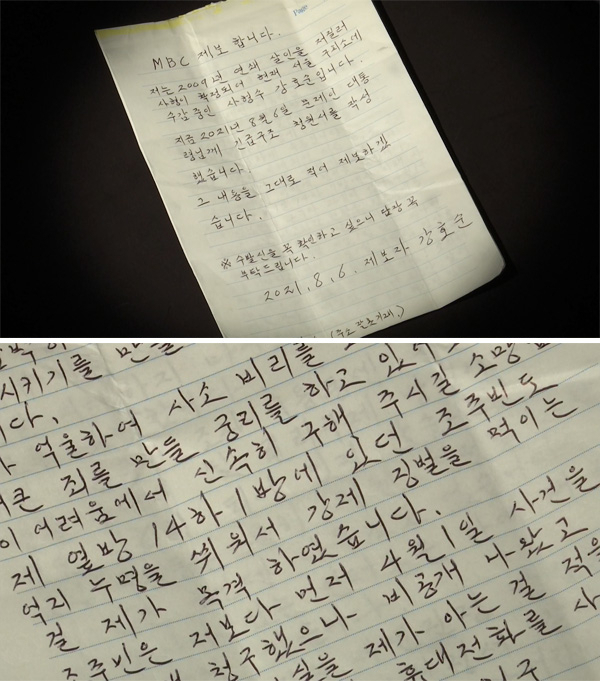 Page
MBC 제보합니다.
저는 2009년 연쇄 살인을 저질러
사형이 확정되어 현재 서울 구치소에
수감 중인 사형수 강호순입니다.
지금 2021년 8월 6일 문재인 대통
령님께 긴급구조 청원서를 작성
했습니다.
그 내용을 그대로 적어 제보하겠
습니다.
※ 수발신을 꼭 확인하고 싶으니 답장 꼭
부탁드립니다.
2021. 8. 6. 제보자 강호순
시키기를 만들
사소 비리를
니다.
억울하여
궁리를 하고 있
큰 죄를 만들
신속히 구해 주시길 소망
이 어려움에서
제 옆방 14하1방에 있던 조주빈도
억지 누명을 씌워서 강제 징벌을 먹이는
걸 제가 목격 하였습니다.
조주빈은 저보다 먼저 4월 1일 사건을
청구했으나 비공개 나왔고
실을 제가 아는 걸 적을
휴대전화를 사